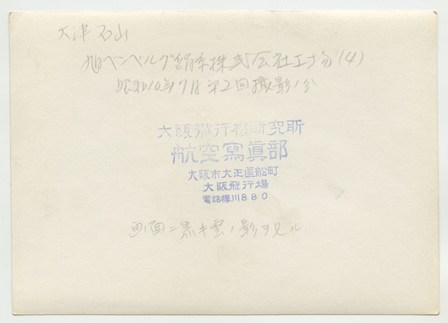 大津 石山
旭ベンベルグ絹糸株式会社工場(4)
昭和10年9月第2回撮影ノ分
大阪飛行機研究所
航空寫眞部
大阪市大正區船町
大阪飛行場
電話櫻川880
画面ニ黒キ雲ノ影ヲ見ル